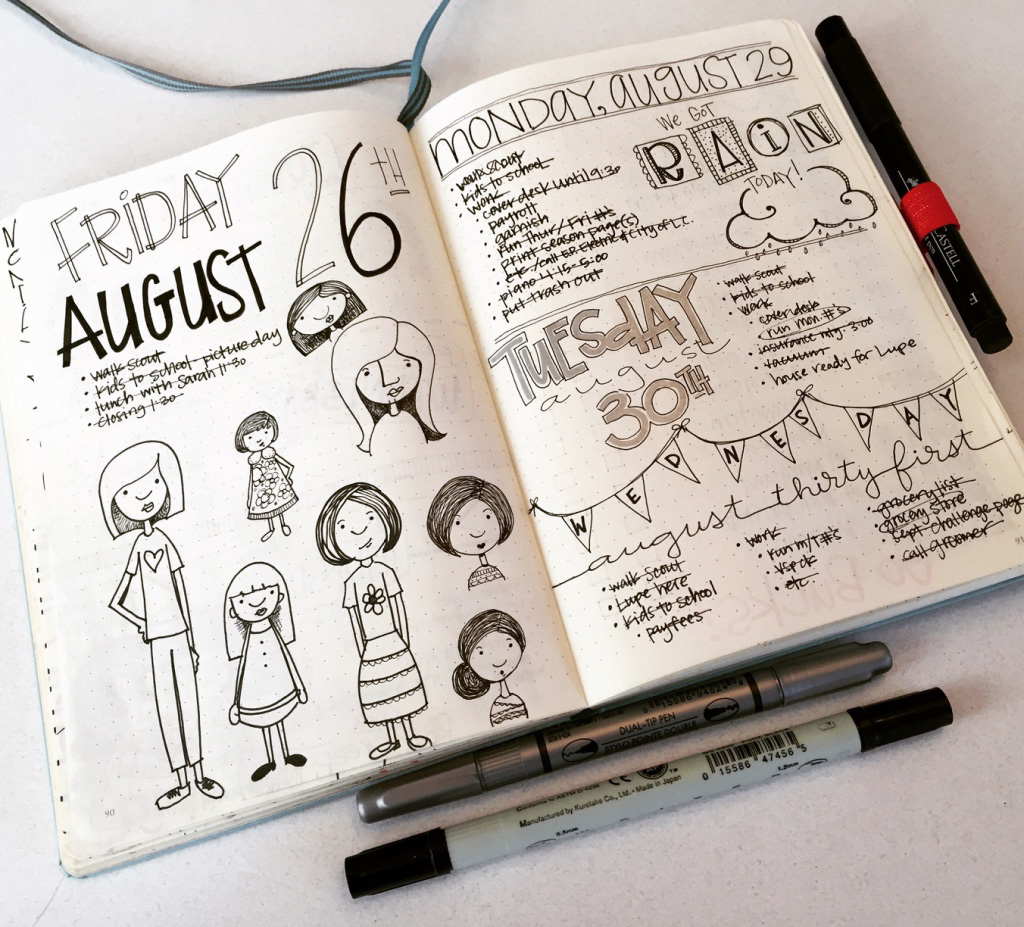 FRIDAY
26TH
AUGUST
• walk scout
• kids to school picture day
• lunch with Sarah 11:30
• closing 1:30
90
MONDAY, AUGUST 29
• walk scout
• kids to school
• work
• cover desk until 9:30
• payroll
• garnish
• run Thur/Fri #s
• print season page(s)
• etc./call E.P. Electric & City of L.C.
• piano 4:15-5:00
• put trash out
We GOT
RAIN
TODAY!
TUESdAY
august
30TH
• walk scout
• kids to school
• work
• cover desk
• run mon. #s
• insurance mtg. 3:00
• vacuum
• house ready for Lupe
WEDNESDAY
august thirty first
• walk scout
• Lupe here
• kids to school
• pay fees
• work
• run m/T #s
• etc.
• grocery list
• grocery store
• sept. challenge page
• call groomer
91
CASTELL
DUAL-TIP PEN
STYLO POINTE DOUBLE
Conforms to ASTM D-4236
Manufactured by Kuretake Co., Ltd. • Made in Japan
0.5mm
0 15586 47456 5